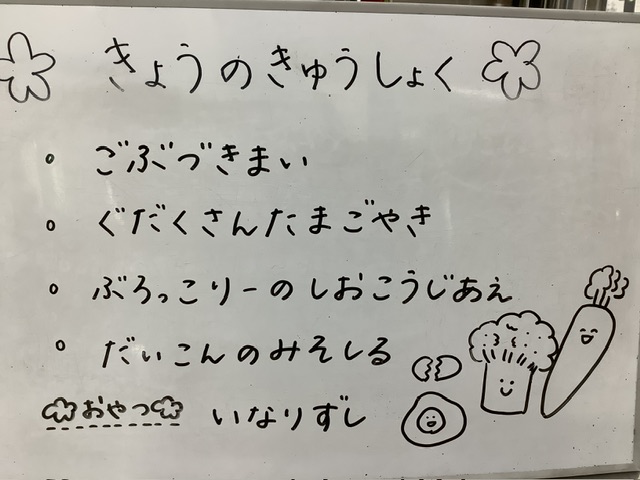 きょうのきゅうしょく
。ごぶづきまい
。ぐだくさんたまごやき
。ぶろっこりーのしおこうじあえ
。だいこんのみそしる
おやつ いなりずし